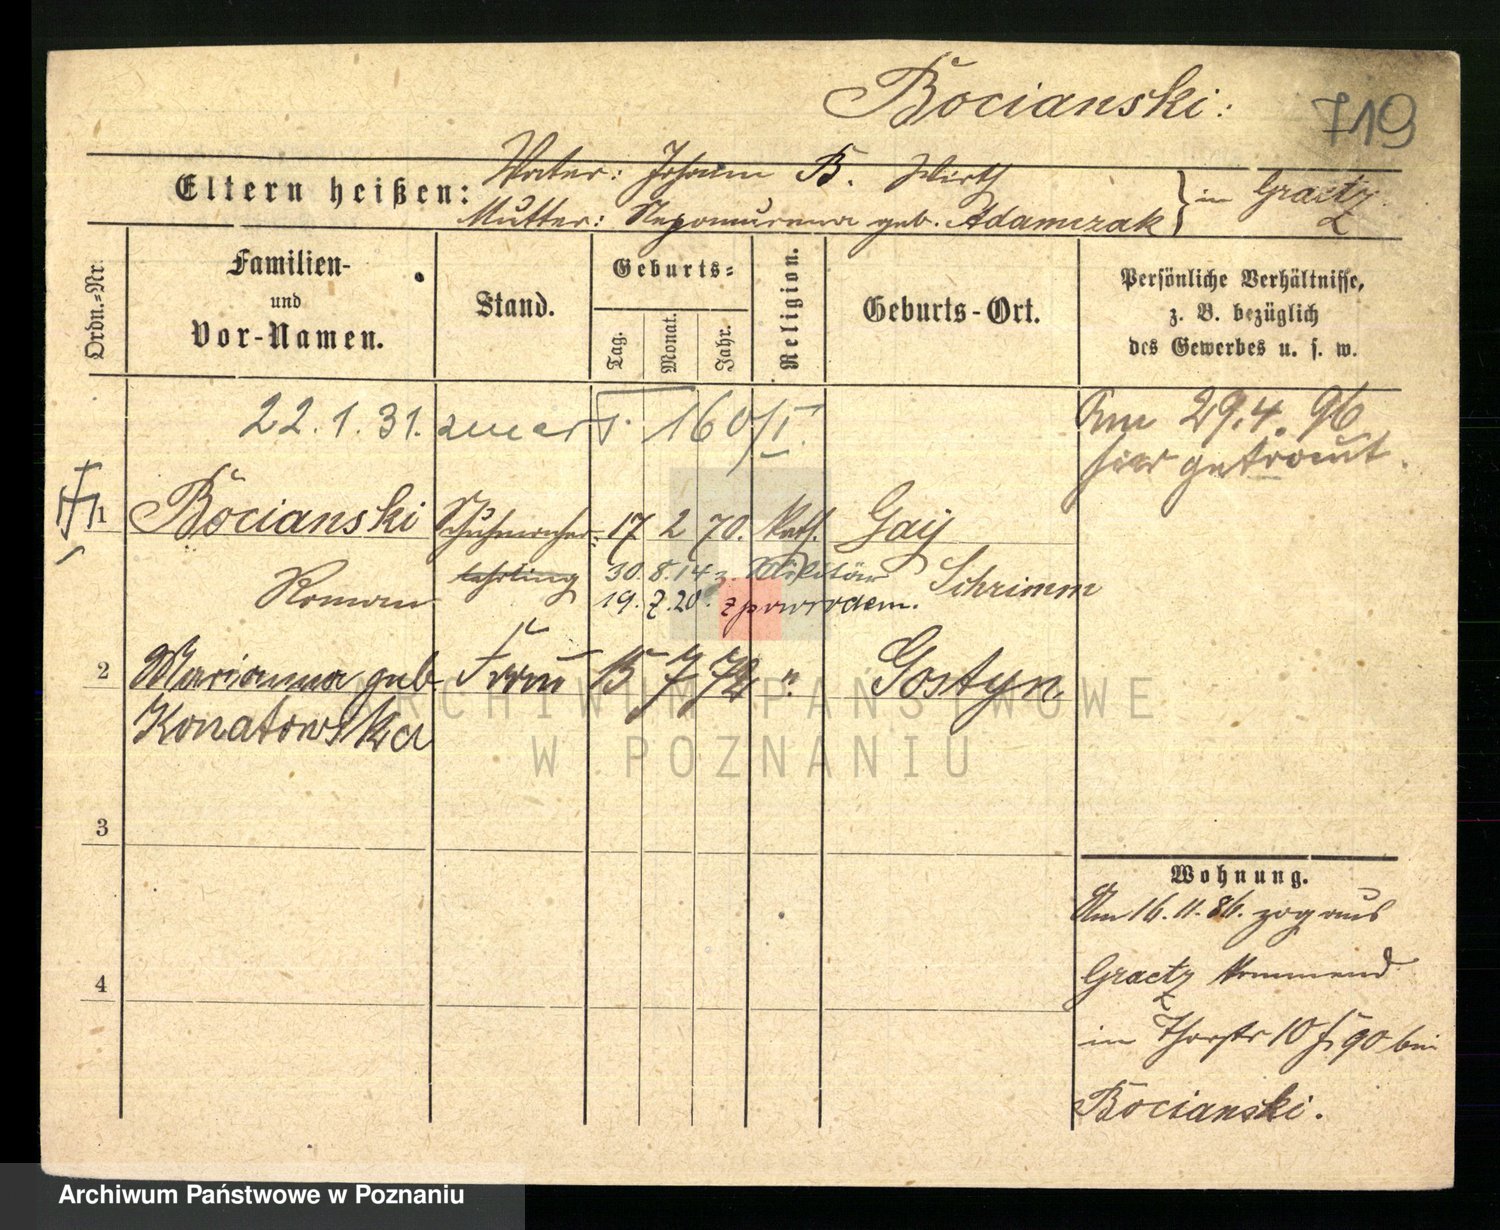 Bocianski:
719
Eltern heißen:
Vater: Johann B. Wirth
Mutter: Nepomucena geb. Adamczak
in Graetz
Ordn.=Nr.
Familien-
und
Vor-Namen.
Stand.
Geburts=
Tag.
Monat.
Jahr.
Religion.
Geburts-Ort.
Persönliche Verhältnisse,
z. B. bezüglich
des Gewerbes u. s. w.
22.1.31. zmarł. 160/I.
Am 29.4.96
hier getraut.
1 Bocianski Schuhmacher= 17 2 70. kath. Gay
Roman lehrling 30.8.14 z. Militär Schrimm
19.7.20. z powrotem.
2 Marianna geb Frau 15 7 72 " Gostyn
Konatowska
ARCHIWUM PAŃSTWOWE
W POZNANIU
3
4
Wohnung.
Am 16.11.86. zog aus
Graetz kommend
in Thorstr 10 f. 90 bei
Bocianski.
Archiwum Państwowe w Poznaniu